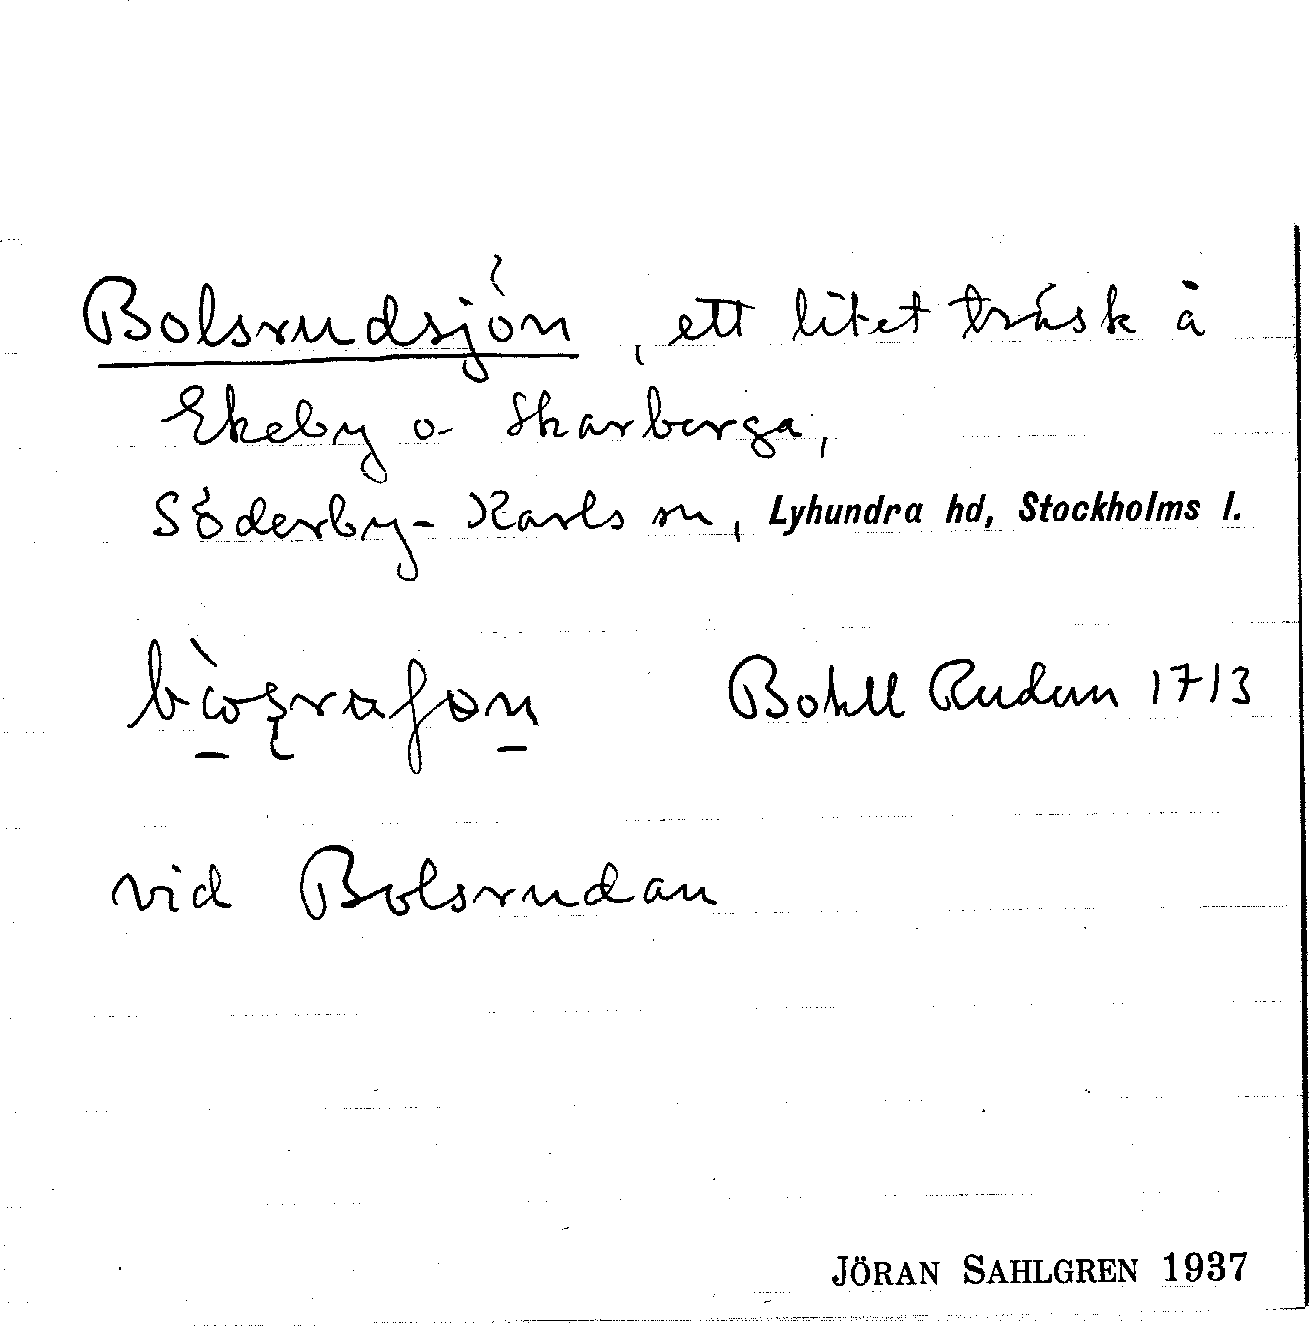 Bolsrudsjön, ett litet träsk å
Ekeby o Skarberga,
Söderby-Karls sn, Lyhundra hd, Stockholms l.
Rudan 1713
vid Bolsrudan
JÖRAN SAHLGREN 1937